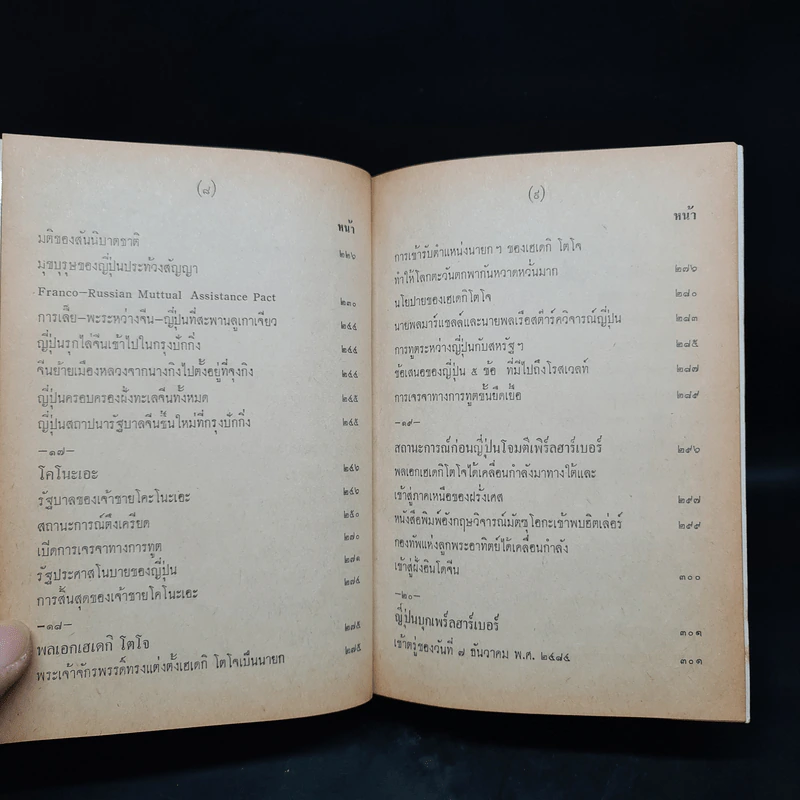 (๘)
หน้า
มติของสันนิบาตชาติ ๒๒๖
มุขบุรุษของญี่ปุ่นประท้วงสัญญา
Franco—Russian Muttual Assistance Pact ๒๓๐
การเสีย—พระระหว่างจีน—ญี่ปุ่นที่สะพานลูเกาเจียว ๒๔๔
ญี่ปุ่นรุกไล่จีนเข้าไปในกรุงปักกิ่ง ๒๔๔
จีนย้ายเมืองหลวงจากนางกิงไปตั้งอยู่ที่จุงกิง ๒๔๔
ญี่ปุ่นครอบครองฝั่งทะเลจีนทั้งหมด ๒๔๕
ญี่ปุ่นสถาปนารัฐบาลจีนขึ้นใหม่ที่กรุงปักกิ่ง ๒๔๕
—๑๗—
โคโนะเอะ ๒๔๖
รัฐบาลของเจ้าชายโคะโนะเอะ ๒๔๖
สถานะการณ์ตึงเครียด ๒๕๐
เปิดการเจรจาทางการทูต ๒๗๐
รัฐประศาสโนบายของญี่ปุ่น ๒๗๑
การสิ้นสุดของเจ้าชายโคโนะเอะ ๒๗๔
—๑๘—
พลเอกเฮเดกิ โตโจ ๒๗๕
พระเจ้าจักรพรรดิ์ทรงแต่งตั้งเฮเดกิ โตโจเป็นนายก ๒๗๕
(๙)
หน้า
การเข้ารับตำแหน่งนายก ฯ ของเฮเดกิ โตโจ
ทำให้โลกตะวันตกพากันหวาดหวั่นมาก ๒๗๖
นโยบายของเฮเดกิโตโจ ๒๘๐
นายพลมาร์แชลล์และนายพลเรือสต๊าร์ควิจารณ์ญี่ปุ่น ๒๘๓
การทูตระหว่างญี่ปุ่นกับสหรัฐฯ ๒๘๕
ข้อเสนอของญี่ปุ่น ๕ ข้อ ที่มีไปถึงโรสเวลท์ ๒๘๗
การเจรจาทางการทูตขั้นยืดเยื้อ ๒๘๙
—๑๙—
สถานะการณ์ก่อนญี่ปุ่นโจมตีเพิร์ลฮาร์เบอร์ ๒๙๖
พลเอกเฮเดกิโตโจได้เคลื่อนกำลังมาทางใต้และ
เข้าสู่ภาคเหนือของฝรั่งเศส ๒๙๗
หนังสือพิมพ์อังกฤษวิจารณ์มัตซุโอกะเข้าพบฮิตเล่อร์ ๒๙๙
กองทัพแห่งลูกพระอาทิตย์ได้เคลื่อนกำลัง
เข้าสู่ฝั่งอินโดจีน ๓๐๐
—๒๐—
ญี่ปุ่นบุกเพร์ลฮาร์เบอร์ ๓๐๑
เช้าตรู่ของวันที่ ๗ ธันวาคม พ.ศ. ๒๔๘๔ ๓๐๑